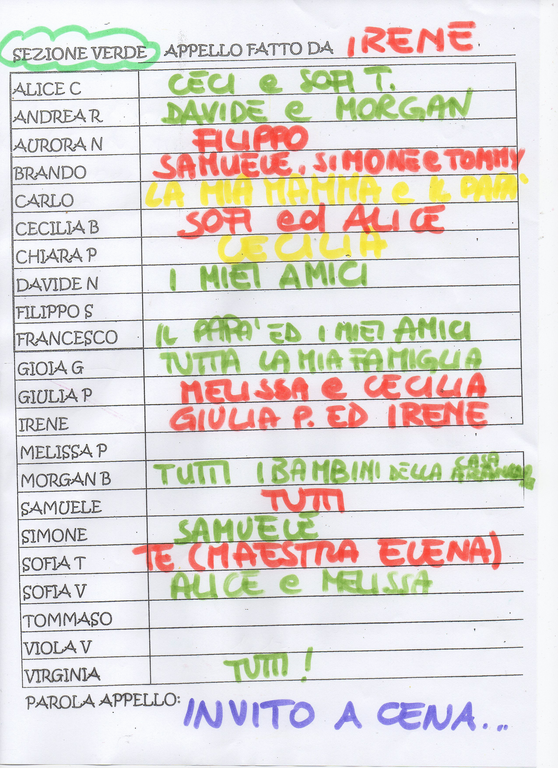 SEZIONE VERDE APPELLO FATTO DA IRENE
ALICE C CECI e SOFI T.
ANDREA R DAVIDE e MORGAN
AURORA N FILIPPO
BRANDO SAMUELE, SIMONE e TOMMY
CARLO LA MIA MAMMA e IL PAPA'
CECILIA B SOFI ed ALICE
CHIARA P CECILIA
DAVIDE N I MIEI AMICI
FILIPPO S
FRANCESCO IL PAPA' ED I MIEI AMICI
GIOIA G TUTTA LA MIA FAMIGLIA
GIULIA P MELISSA e CECILIA
IRENE GIULIA P. ED IRENE
MELISSA P
MORGAN B TUTTI I BAMBINI DELLA CASA
SAMUELE TUTTI
SIMONE SAMUELE
SOFIA T TE (MAESTRA ELENA)
SOFIA V ALICE e MELISSA
TOMMASO
VIOLA V
VIRGINIA TUTTI!
PAROLA APPELLO: INVITO A CENA...